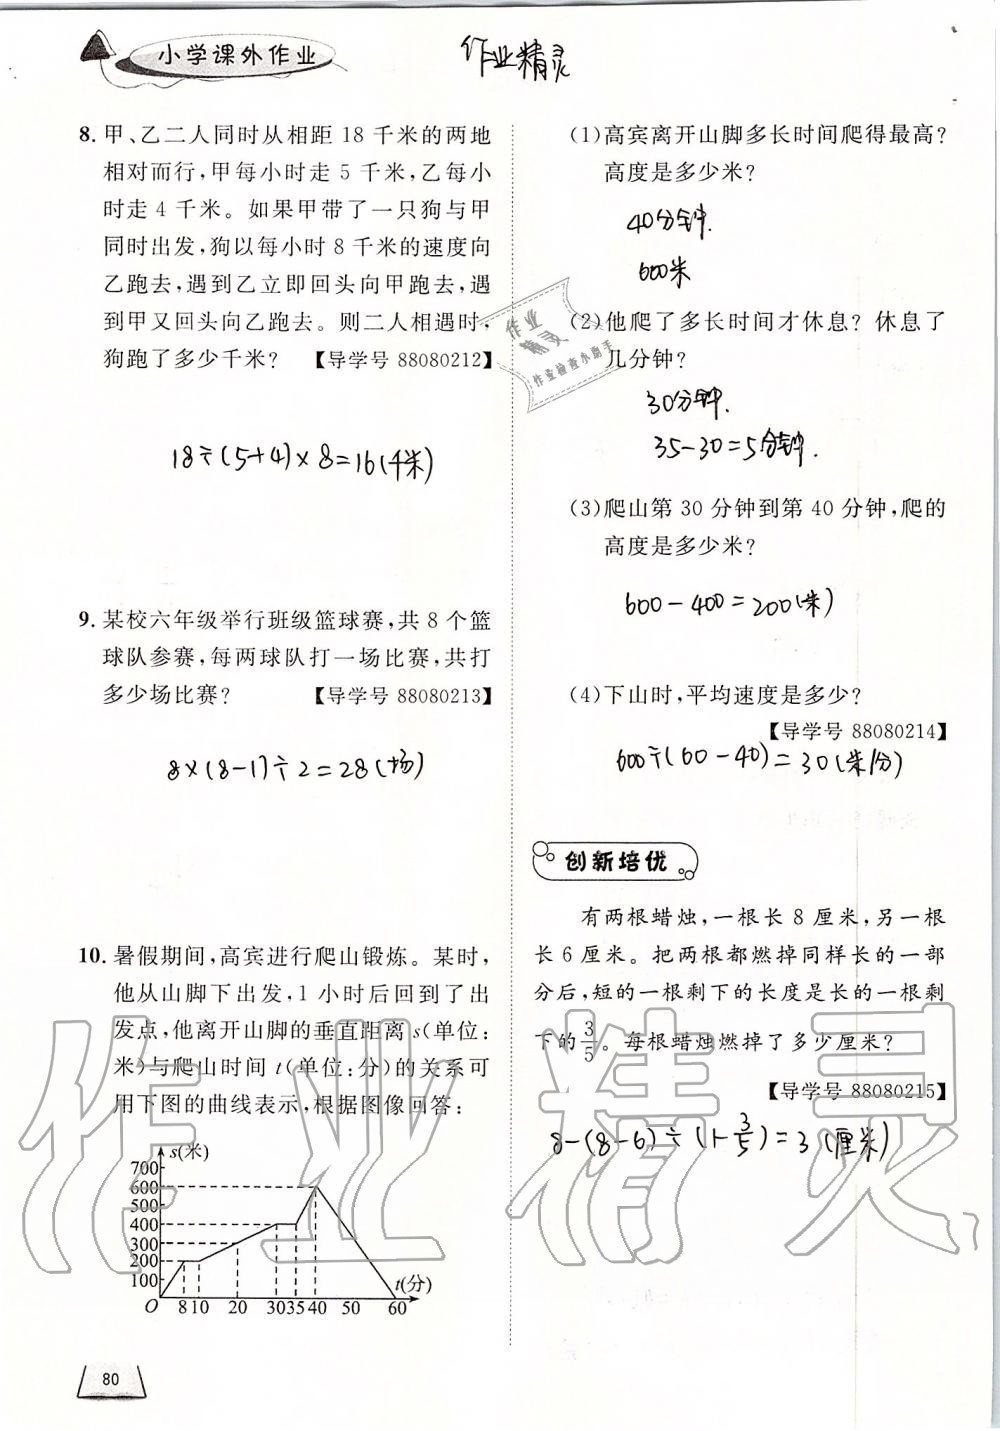 小学课外作业
作业精灵
8. 甲、乙二人同时从相距 18 千米的两地
相对而行,甲每小时走 5 千米,乙每小
时走 4 千米。如果甲带了一只狗与甲
同时出发,狗以每小时 8 千米的速度向
乙跑去,遇到乙立即回头向甲跑去,遇
到甲又回头向乙跑去。则二人相遇时,
狗跑了多少千米? 【导学号 88080212】
18÷(5+4)×8=16(千米)
9. 某校六年级举行班级篮球赛,共 8 个篮
球队参赛,每两球队打一场比赛,共打
多少场比赛? 【导学号 88080213】
8×(8-1)÷2=28(场)
10. 暑假期间,高宾进行爬山锻炼。某时,
他从山脚下出发,1 小时后回到了出
发点,他离开山脚的垂直距离 s(单位:
米)与爬山时间 t(单位:分)的关系可
用下图的曲线表示,根据图像回答:
s(米)
700
600
500
400
300
200
100
t(分)
O 8 10 20 30 35 40 50 60
80
(1)高宾离开山脚多长时间爬得最高?
高度是多少米?
40分钟.
600米
(2)他爬了多长时间才休息? 休息了
几分钟?
30分钟.
35-30=5分钟.
(3)爬山第 30 分钟到第 40 分钟,爬的
高度是多少米?
600-400=200(米)
(4)下山时,平均速度是多少?
【导学号 88080214】
600÷(60-40)=30(米/分)
创新培优
有两根蜡烛,一根长 8 厘米,另一根
长 6 厘米。把两根都燃掉同样长的一部
分后,短的一根剩下的长度是长的一根剩
下的3/5。每根蜡烛燃掉了多少厘米?
【导学号 88080215】
8-(8-6)÷(1-3/5)=3(厘米)
作业
精灵
作业检查小助手
作业精灵